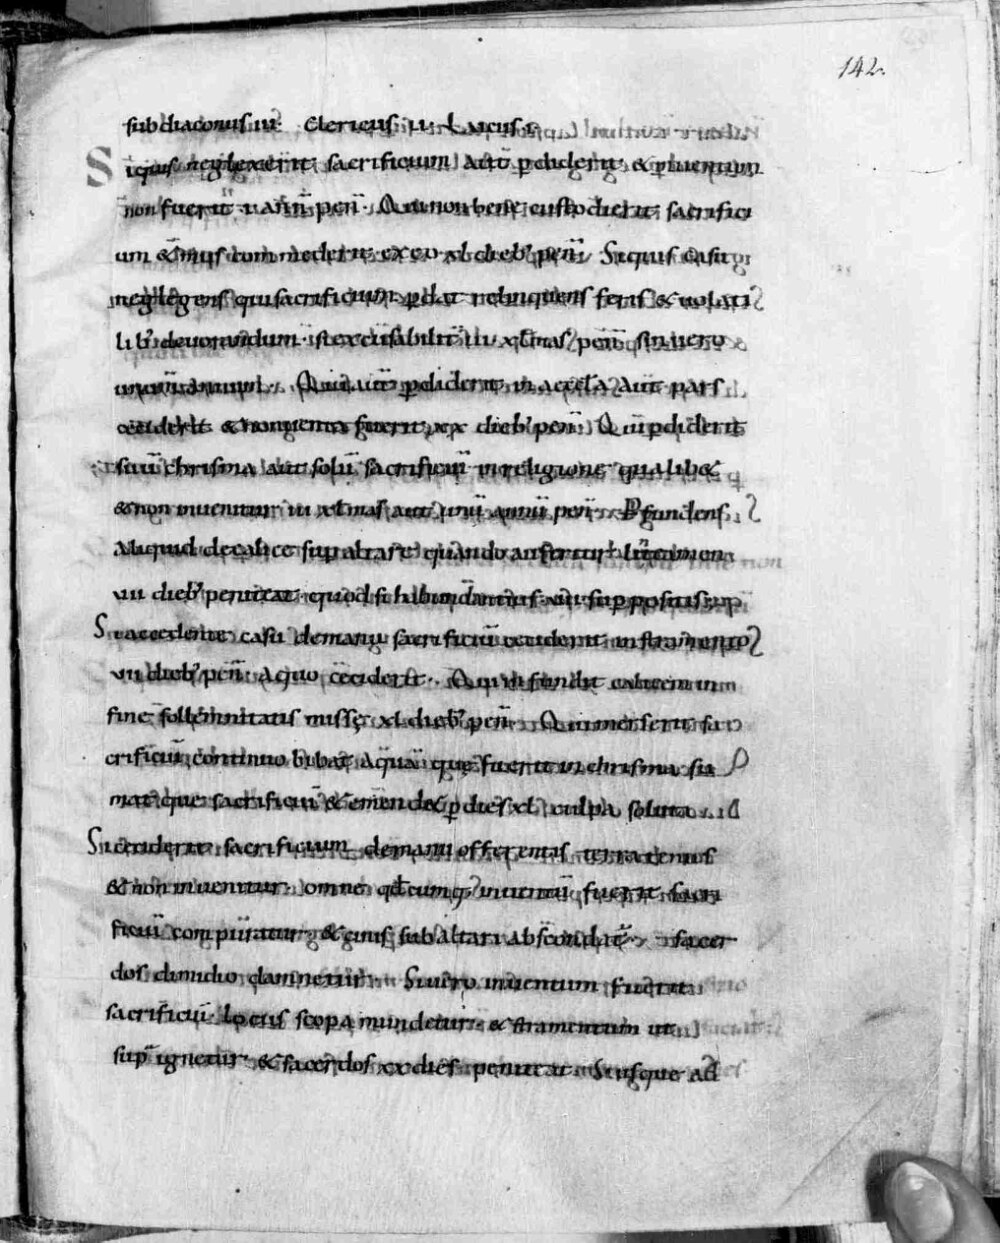 142.
subdiaconus iii. Clericus ii. Laicus i.
Siquis neglexerit sacrificium aut pdiderit & puentum
non fuerit i ann̄ pen̄. Qui non bene custodierit sacrifici
um & mus commederit ex eo xl dieb; pen̄. Siquis casu
neglegens qui sacrificium pdat relinquens feris & uolati
lib; deuorandum si excusabilit iii xlmas pen̄ sin uero
unum annum. Qui aut pdiderit in aeccla aut pars
ceciderit & non inuenta fuerit xx dieb; pen̄. Qui pdiderit
suū chrisma aut solū sacrificiū in religione qualib&
& non inuenitur iii xlmas aut unū annū pen̄. Pfundens
Aliquid de calice sup altare quando aufertur linteamen
vii dieb; peniteat quod si habundantius vii suppositis
Si accedente casu de manu sacrificiū ceciderit in stramento
vii dieb; pen̄ a quo ceciderit. Qui infundit calicem in
fine sollemnitatis missę xl dieb; pen̄. Qui merserit sa
crificiū continuo bibat aquā quę fuerit in chrisma su
mat que sacrificiū & emendet p dies xl culpa soluta
Si ceciderit sacrificium de manu offerentis terratenus
& non inuenitur omne qđcumq; inuentū fuerit
ficiū comburatur & cinis sub altari abscondat sacer
dos dimidio damnetur. Si uero inuentum fuerit
sacrificiū. Locus scopa mundetur & stramentum ut
sup̄ ignetur & sacerdos xx dies peniteat. Si usque ad